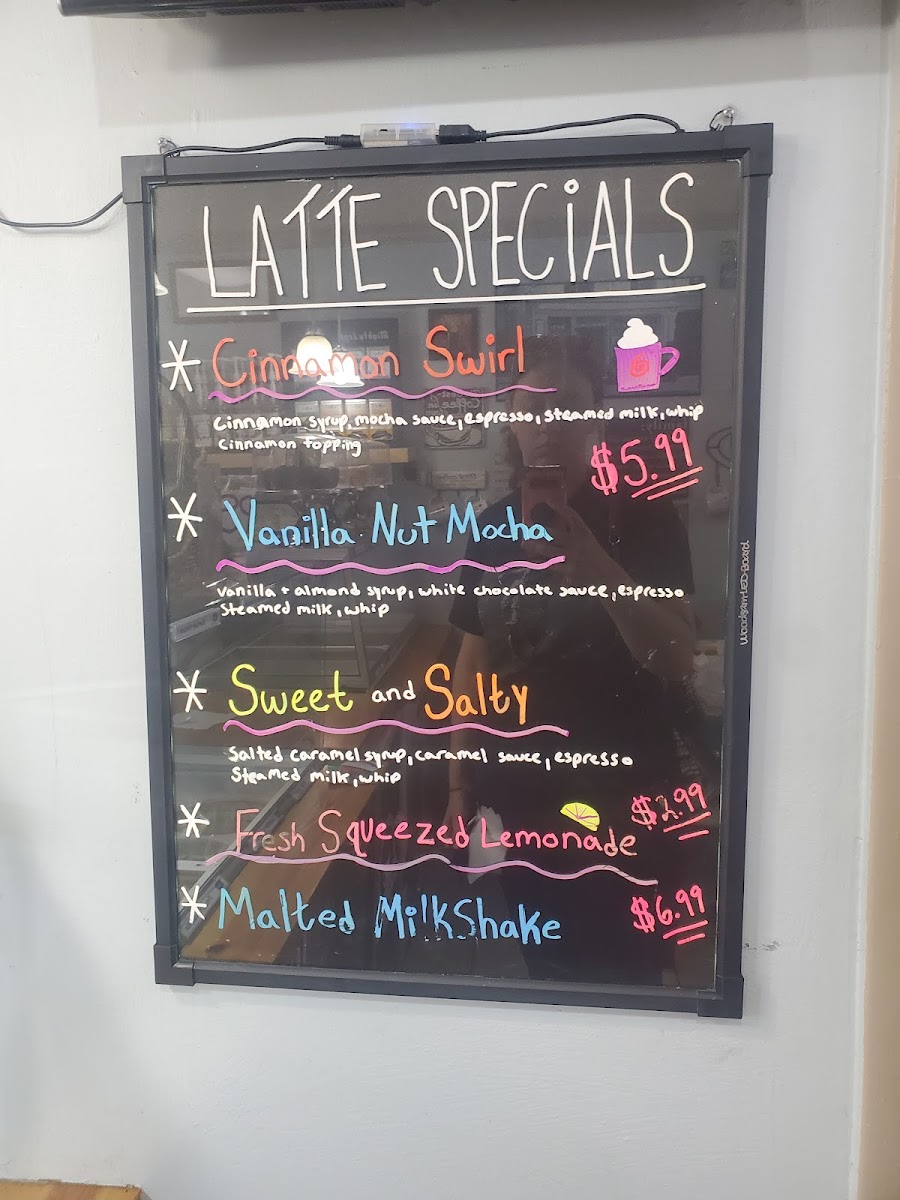 LATTE SPECiALS
* Cinnamon Swirl
Cinnamon syrup, mocha sauce, espresso, steamed milk, whip
cinnamon topping
$5.99
* Vanilla Nut Mocha
vanilla + almond syrup, white chocolate sauce, espresso
Steamed milk, whip
* Sweet and Salty
Salted caramel syrup, caramel sauce, espresso
Steamed milk, whip
* Fresh Squeezed Lemonade $2.99
* Malted MilkShake $6.99
Woodsam LED Board